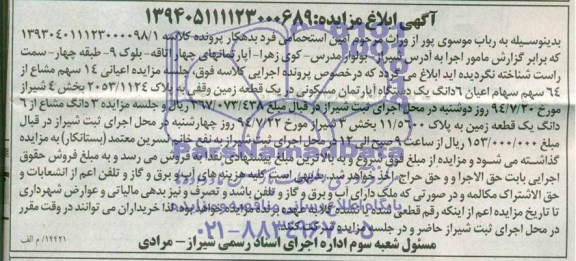 آگهی ابلاغ مزایده: ۱۳۹۴۰۵۱۱۱۱۲۳۰۰۰۶۸۹
بدینوسیله به رباب موسوی پور از وراث مرحوم امین استحمامی فرد بدهکار پرونده کلاسه ۱۳۹۳۰۴۰۱۱۱۲۳۰۰۰۰۹۸/۱
که برابر گزارش مامور اجرا به آدرس شیراز- بولوار مدرس- کوی زهرا- آپارتمانهای چهار اتاقه- بلوک ۹- طبقه چهار- سمت
راست شناخته نگردیده اید ابلاغ می گردد که درخصوص پرونده اجرایی کلاسه فوق جلسه مزایده اعیانی ۱۴ سهم مشاع از
۶۴ سهم سهام اعیان ۶دانگ یک دستگاه آپارتمان مسکونی در یک قطعه زمین وقفی به پلاک ۲۰۵۳/۱۱۲۴ بخش ۴ شیراز
مورخ ۹۴/۷/۲۰ روز دوشنبه در محل اجرای ثبت شیراز در قبال مبلغ ۳۶۷/۰۷۳/۴۳۸ ریال و جلسه مزایده ۳ دانگ مشاع از ۶
دانگ یک قطعه زمین به پلاک ۱۱/۵۶۰۰ بخش ۳ شیراز مورخ ۹۴/۷/۲۲ روز چهارشنبه در محل اجرای ثبت شیراز در قبال
مبلغ ۱۵۳/۰۰۰/۰۰۰ ریال از ساعت ۹ صبح الی ۱۲ در محل اجرای ثبت شیراز به نفع خانم نسرین معتمد (بستانکار) به مزایده
گذاشته می شود و مزایده از مبلغ فوق شروع و به بالاترین مبلغ پیشنهادی نقدا به فروش می رسد و به مبلغ فروش حقوق
اجرایی بابت حق الاجرا و و حق حراج اخذ خواهد شد. بدیهی است کلیه هزینه های آب و برق و گاز و تلفن اعم از انشعابات و
حق الاشتراک مکالمه و در صورتی که ملک دارای آب و برق و گاز و تلفن باشد و تصرف و نیز بدهی مالیاتی و عوارض شهرداری
تا تاریخ مزایده اعم از اینکه رقم قطعی شده یا نشده کلا به عهده برنده مزایده خواهد بود لذا خریداران می توانند در وقت مقرر
در محل اجرای ثبت شیراز حاضر و در جلسه مزایده شرکت کنند.
مسئول شعبه سوم اداره اجرای اسناد رسمی شیراز- مرادی
۱۴۴۲۱/ م الف
۰۲۱-۸۸۳۴۹۶۷۰-۵